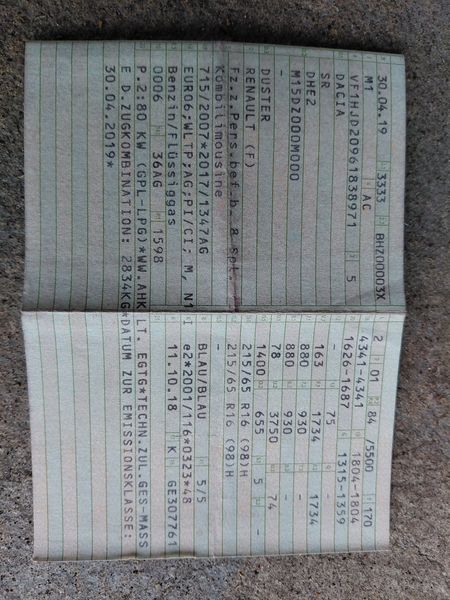 30.04.19 3333 BHZ00003X
M1 AC
VF1HJD20961838971 5
DACIA
SR
DHE2
M15DZ000M000
DUSTER
RENAULT (F)
Fz.z.Pers.bef.b. 8 Spl.
Kombilimousine
715/2007*2017/1347AG
EURO6;WLTP;AG;PI/CI; M, N1 I
Benzin/Flüssiggas
0006 36AG 1598
2 01 84 /5500 170
4341-4341 1804-1804
1626-1687 1315-1359
- 75 -
163 1734 1734
880 930 -
880 930 -
78 3750 74
1400 655 5 -
215/65 R16 (98)H
215/65 R16 (98)H
BLAU/BLAU 5/5
e2*2001/116*0323*48
11.10.18 K GE307761
P.2:80 KW (GPL-LPG)*WW.AHK LT. EGTG*TECHN.ZUL.GES-MASS
E D.ZUGKOMBINATION: 2834KG*DATUM ZUR EMISSIONSKLASSE:
30.04.2019*